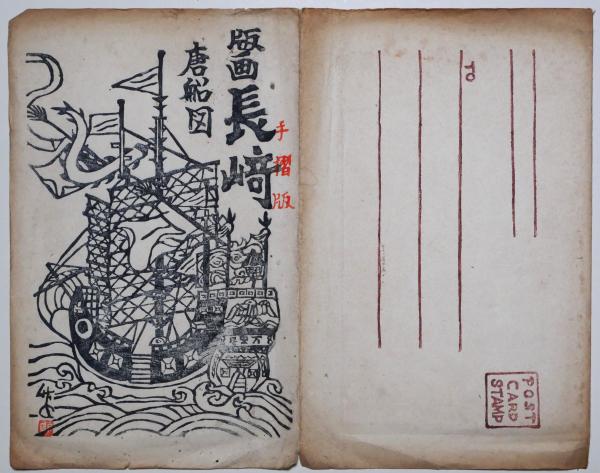 版画
長﨑
手摺版
唐船図
TO
POST
CARD
STAMP